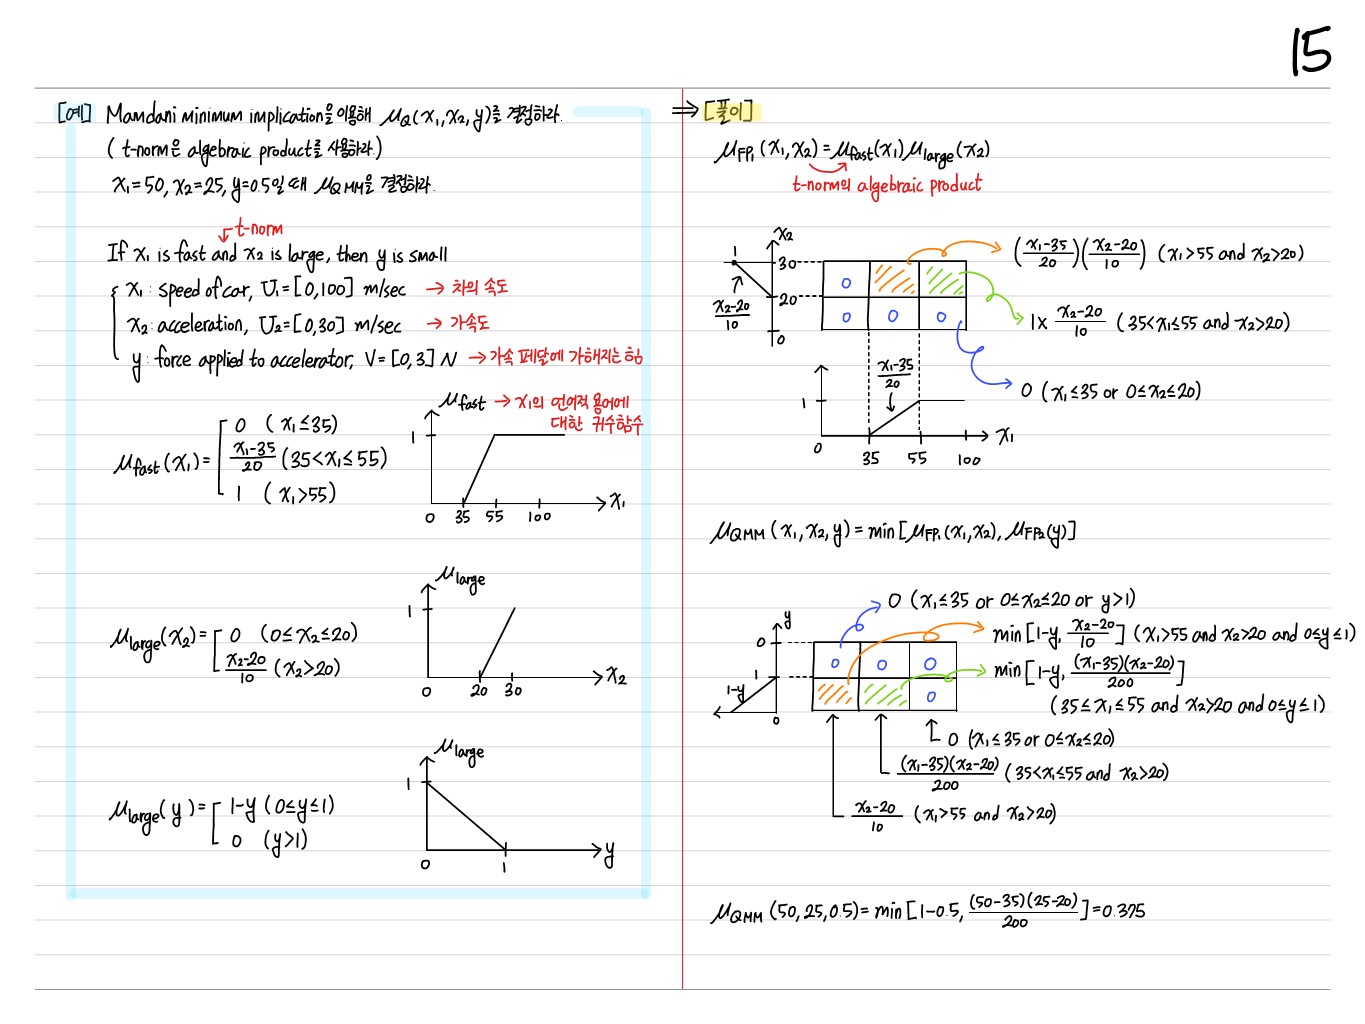 15
[예] Mamdani minimum implication을 이용해 μQ(x₁,x₂,y)를 결정하라.
( t-norm은 algebraic product를 사용하라.)
x₁=50, x₂=25, y=0.5일 때 μQMM을 결정하라.
t-norm
If x₁ is fast and x₂ is large, then y is small
x₁ : speed of car, U₁=[0,100] m/sec → 차의 속도
x₂ : acceleration, U₂=[0,30] m/sec → 가속도
y : force applied to accelerator, V=[0,3] N → 가속 페달에 가해지는 힘
μfast(x₁)=
0 ( x₁≤35)
(x₁-35)/20 (35<x₁≤55)
1 ( x₁>55)
μfast → x₁의 언어적 용어에
대한 귀수함수
1
0 35 55 100 x₁
μlarge(x₂)=
0 (0≤x₂≤20)
(x₂-20)/10 (x₂>20)
μlarge
1
0 20 30 x₂
μlarge(y)=
1-y (0≤y≤1)
0 (y>1)
μlarge
1
0 1 y
⇒ [풀이]
μFP₁(x₁,x₂)=μfast(x₁)μlarge(x₂)
t-norm의 algebraic product
x₂
1
30
20
0
(x₂-20)/10
0
0 0 0
((x₁-35)/20)((x₂-20)/10) (x₁>55 and x₂>20)
1× (x₂-20)/10 (35<x₁≤55 and x₂>20)
0 (x₁≤35 or 0≤x₂≤20)
(x₁-35)/20
1
0 35 55 100 x₁
μQMM(x₁,x₂,y)=min[μFP₁(x₁,x₂), μFP₂(y)]
y
0
1
0
1-y
0 0 0
0
0 (x₁≤35 or 0≤x₂≤20 or y>1)
min[1-y, (x₂-20)/10] (x₁>55 and x₂>20 and 0≤y≤1)
min[1-y, (x₁-35)(x₂-20)/200]
(35≤x₁≤55 and x₂>20 and 0≤y≤1)
0 (x₁≤35 or 0≤x₂≤20)
(x₁-35)(x₂-20)/200 (35<x₁≤55 and x₂>20)
(x₂-20)/10 (x₁>55 and x₂>20)
μQMM(50,25,0.5)=min[1-0.5, (50-35)(25-20)/200]=0.375